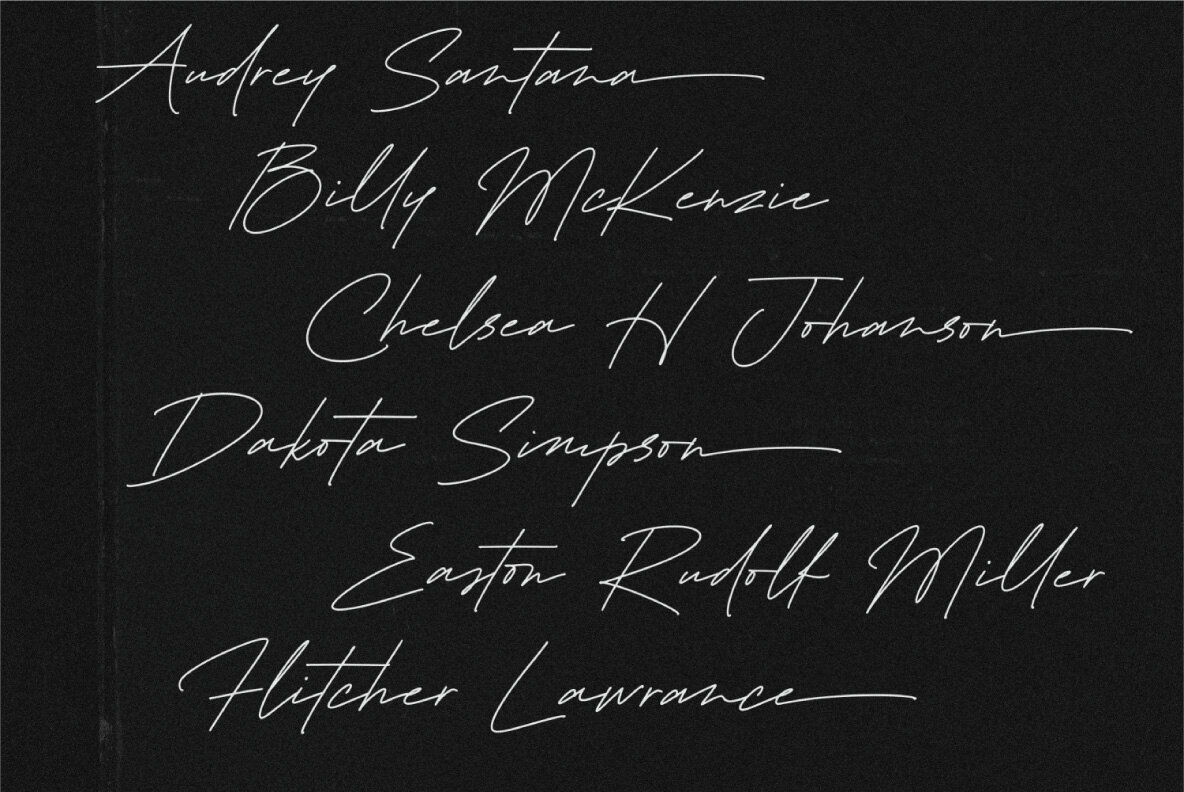 Audrey Santana
Billy McKenzie
Chelsea H Johanson
Dakota Simpson
Easton Rudolf Miller
Flitcher Lawrance